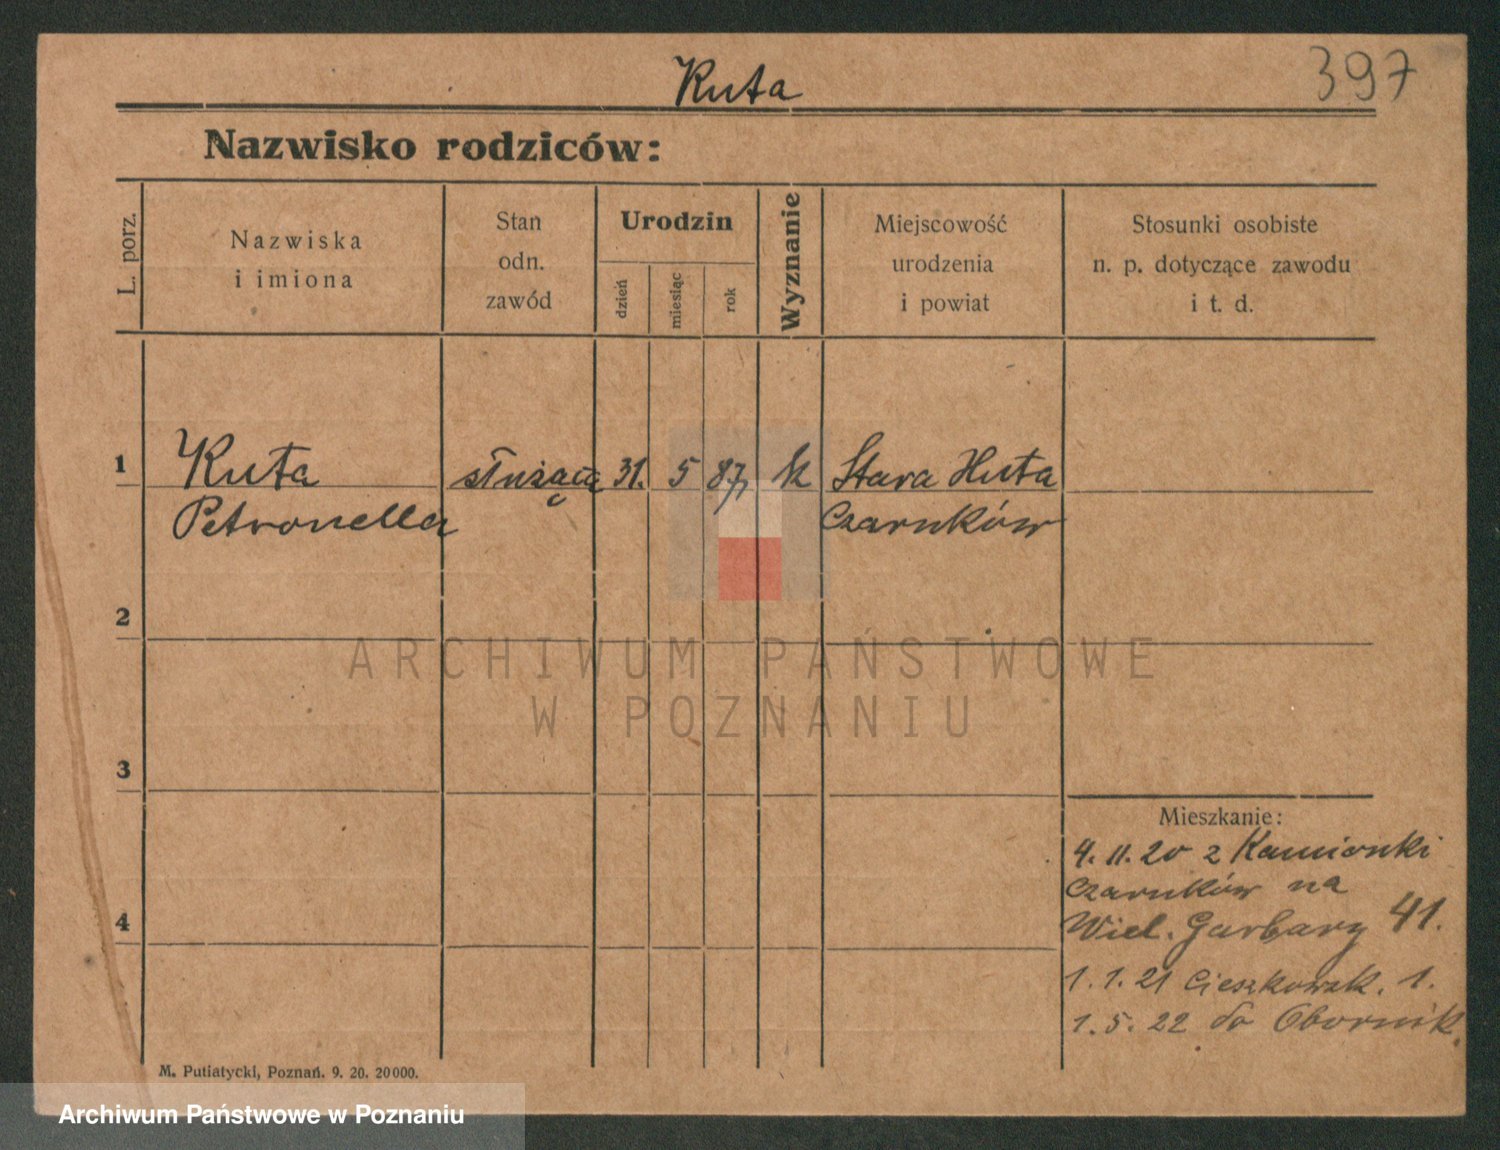 Kuta
397
Nazwisko rodziców:
L. porz.
Nazwiska
i imiona
Stan
odn.
zawód
Urodzin
dzień
miesiąc
rok
Wyznanie
Miejscowość
urodzenia
i powiat
Stosunki osobiste
n. p. dotyczące zawodu
i t. d.
1
Kuta
Petronella
służąca
31.
5
87
k
Stara Huta
Czarnków
2
ARCHIWUM PAŃSTWOWE
W POZNANIU
3
Mieszkanie:
4. 11. 20 z Kamionki
Czarnków na
Wiel. Garbary 41.
4
1. 1. 21 Cieszkowsk. 1.
1. 5. 22 do Obornik.
M. Putiatycki, Poznań. 9. 20. 20000.
Archiwum Państwowe w Poznaniu